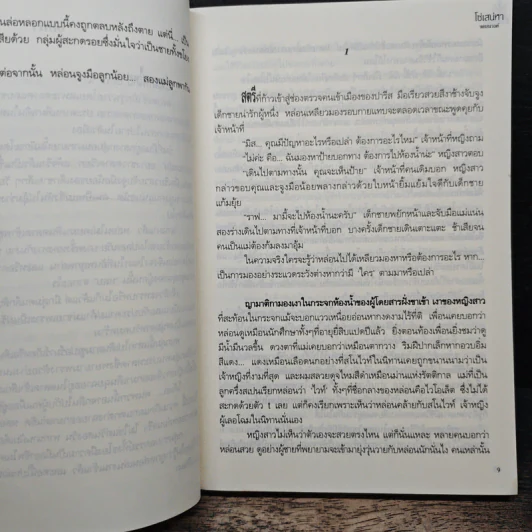 นล่อหลอกแบบนี้คงถูกตลบหลังถึงตาย แต่นี่... เป็น
สียด้วย กลุ่มผู้สะกดรอยซึ่งมั่นใจว่าเป็นชายทั้ง
ต่อจากนั้น หล่อนจูงมือลูกน้อย... สองแม่ลูกพากัน
โซ่เสน่หา
1
สตรีที่ก้าวเข้าสู่ช่องตรวจคนเข้าเมืองของปารีส มือเรียวสวยสีงาช้างจับจูง
เด็กชายน่ารักผู้หนึ่ง หล่อนเหลียวมองรอบกายแทบจะตลอดเวลาขณะพูดคุยกับ
เจ้าหน้าที่
"มิส... คุณมีปัญหาอะไรหรือเปล่า ต้องการอะไรไหม" เจ้าหน้าที่หญิงถาม
"ไม่ค่ะ คือ... ฉันมองหาป้ายบอกทาง ต้องการไปห้องน้ำน่ะ" หญิงสาวตอบ
"เดินไปตามทางนั้น คุณจะเห็นป้าย" เจ้าหน้าที่คนเดิมบอก หญิงสาว
กล่าวขอบคุณและจูงมือน้อยพลางกล่าวด้วยใบหน้ายิ้มแย้มใจดีกับเด็กชาย
แก้มยุ้ย
"ราฟ... มามี้จะไปห้องน้ำนะครับ" เด็กชายพยักหน้าและจับมือแม่แน่น
สองร่างเดินไปตามทางที่เจ้าหน้าที่บอก บางครั้งเด็กชายเดินเตาะแตะ ช้าเสียจน
คนเป็นแม่ต้องก้มลงมาอุ้ม
ในความจริงใครจะรู้ว่าหล่อนไม่ได้เหลียวมองหาหรือต้องการอะไร หาก...
เป็นการมองอย่างระแวดระวังต่างหากว่ามี 'ใคร' ตามมาหรือเปล่า
ญามาติกามองเงาในกระจกห้องน้ำของผู้โดยสารฝั่งขาเข้า เงาของหญิงสาว
ที่สะท้อนในกระจกแม้จะบอกแววเหนื่อยอ่อนหากงดงามไร้ที่ติ เพื่อนเคยบอกว่า
หล่อนดูเหมือนนักศึกษาทั้งๆ ที่อายุยี่สิบแปดปีแล้ว ยิ่งตอนท้องเพื่อนยิ่งชมว่าดู
มีน้ำมีนวลขึ้น ดวงตาที่แม่เคยบอกว่าเหมือนตากวาง ริมฝีปากเล็กหากอวบอิ่ม
สีแดง... แดงเหมือนเลือดนกอย่างที่สโนไวท์ในนิทานเคยถูกขนานนามว่าเป็น
เจ้าหญิงที่งามที่สุด และผมสลวยดุจไหมสีดำเหมือนม่านแห่งรัตติกาล แม่ที่เป็น
ลูกครึ่งสเปนเรียกหล่อนว่า 'ไวท์' ทั้งๆ ที่ชื่อกลางของหล่อนคือไวโอเล็ต ซึ่งไม่ได้
สะกดด้วยตัว t เลย แต่ก็คงเรียกเพราะเห็นว่าหล่อนคล้ายกับสโนไวท์ เจ้าหญิง
ผู้เลอโฉมในนิทานนั่นเอง
หญิงสาวไม่เห็นว่าตัวเองจะสวยตรงไหน แต่ก็นั่นแหละ หลายคนบอกว่า
หล่อนสวย ดูอย่างผู้ชายที่พยายามจะเข้ามายุ่งวุ่นวายกับหล่อนนักนั่นไง คนเหล่านั้น
9